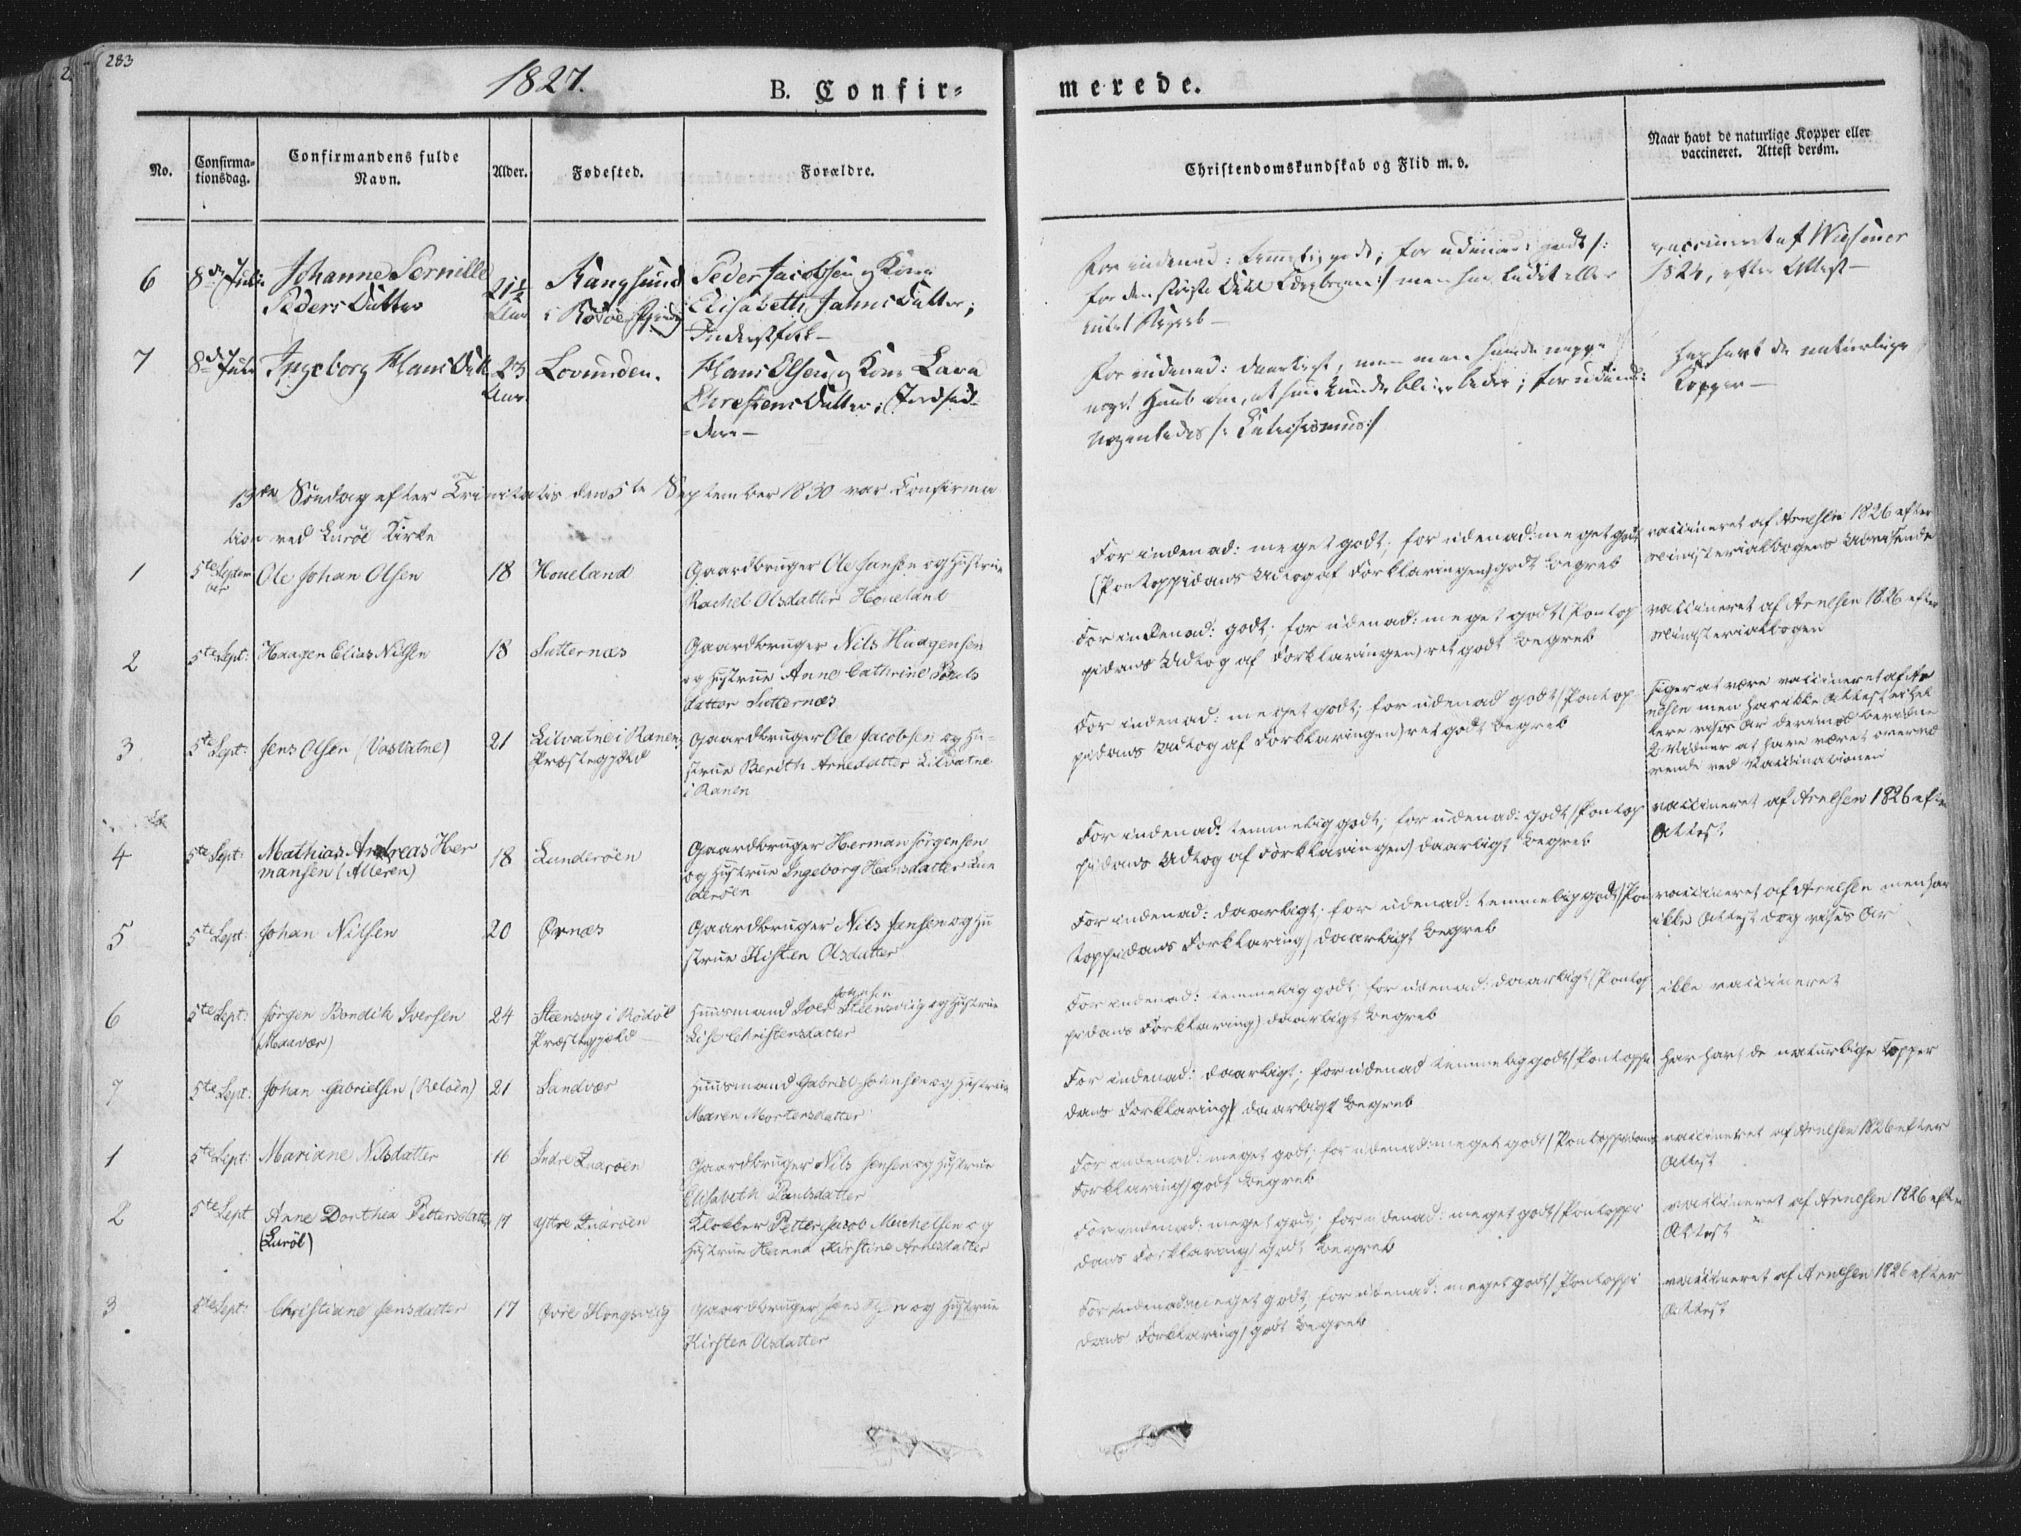 283
1827.
B. Confir=
merede.
No.
Confirma-
tionsdag.
Confirmandens fulde
Navn.
Alder.
Fødested.
Forældre.
Christendomskundskab og Flid m. v.
Naar havt de naturlige Kopper eller
vaccineret. Attest derom.
6
8de Juli
Johanne Pernille
Peders Datter
21½
Aar
Rangsund
i Rødøe
Peder Jacobsen og Kone
Elisabeth Jahns Datter;
Inderstfolk —
For indenad: temmelig godt; for udenad: godt /:
men
Begreb —
vaccineret af
1824, efter Attest —
7
8de Juli
Ingeborg Hans Datt
23
Aar
Lovunden.
Hans Olsen og Kone Lava
Christens Datter; Indsid=
=dere —
For indenad: daarligt, men man havde neppe
noget Haab om, at hun kunde blive bedre; for udenad:
nogenledes /: Catechismus :/
har havt de naturlige
Kopper —
13de Søndag efter Trinitatis den 5te September 1830 var Confirma
tion ved Lurøe Kirke
1
5te Septem
ber
Ole Johan Olsen
18
Hoveland
Gaardbruger Ole Jansen og Hustrue
Rachel Olsdatter Hoveland
For inden ad: meget godt; for udenad: meget godt
(Pontoppidans Udtog af Forklaringen) godt begreb
vaccineret af Arnesen 1826 efter
Ministerialbogens Udvisende
2
5te Sept:
Haagen Elias Nilsen
18
Sutternæs
Gaardbruger Nils Haagensen
og Hustrue Anne Cathrine Pouls
datter Sutternæs
For indenad: godt; for udenad: meget godt (Pontop
pidans Udtog af Forklaringen) ret godt begreb
vaccineret af Arnesen 1826 efter
Ministerialbogen
3
5te Sept:
Jens Olsen (Vasvatne)
21
Lilvatne i Ranens
Præstegjeld
Gaardbruger Ole Jacobsen og Hu=
strue Berith Arnesdatter Lilvatne
i Ranen
For indenad: meget godt; for udenad godt (Pontop
pidans Udtog af Forklaringen) ret godt begreb
siger at være vaccineret af Ar
nesen men har ikke Attest
2 Vidner at have været overvæ
rende ved Vaccinationen
4
5te Sept:
Mathias Andreas Her
mansen (Alteren)
18
Lunderøen
Gaardbruger Herman Jørgensen
og Hustrue Ingeborg Hansdatter Lun
derøen
For indenad: temmelig godt; for udenad: godt (Pontop
pidans Udtog af Forklaringen) daarligt begreb
vaccineret af Arnesen 1826 efter
Attest
5
5te Sept:
Johan Nilsen
20
Ørnæs
Gaardbruger Nils Jansen og Hu
strue Kisten Olsdatter
For indenad: daarligt; for udenad: temmelig godt (Pon
toppidans Forklaring) daarligt begreb
vaccineret af Arnesen men har
ikke Attest dog vises Ar
6
5te Sept:
Jørgen Bendik Iversen
(Maavær)
24
Steensvig i Rødøe
Præstegjeld
Johnsen
Huusmand Iver Steensvig og Hustrue
Lise Christensdatter
For indenad: temmelig godt; for udenad: daarligt (Pontop
pidans Forklaring) daarligt begreb
ikke vaccineret
7
5te Sept:
Johan Gabrielsen (Reløen)
21
Sandvær
Huusmand Gabriel Johnsen og Hustrue
Maren Mortensdatter
For indenad: daarligt; for udenad temmelig godt (Pontoppi
dans Forklaring) daarligt begreb
har havt de naturlige kopper
1
5te Sept:
Mariane Nilsdatter
16
Indre Qvarøen
Gaardbruger Nils Jensen og Hustrue
Elisabeth Paulsdatter
For indenad: meget godt; for udenad: meget godt (Pontoppidans
Forklaring) godt begreb
vaccineret af Arnesen 1826 efter
Attest
2
5te Sept
Anne Dorthea Pettersdatter
(Lurøe)
17
Yttre Qvarøen
Klokker Petter Jacob Meichelsen og
Hustrue Hanna Kirstine Arnesdatter
For indenad: meget godt; for udenad: meget godt (Pontoppi
dans Forklaring) godt begreb
vaccineret af Arnesen 1826 efter
Attest
3
5te Sept:
Christiane Jensdatter
17
Øvre Hongsvig
Gaardbruger Jens og Hustrue
Kirsten Olsdatter
For indenad: meget godt; for udenad: meget godt (Pontoppi
dans Forklaring) godt begreb
vaccineret af Arnesen 1826 efter
Attest